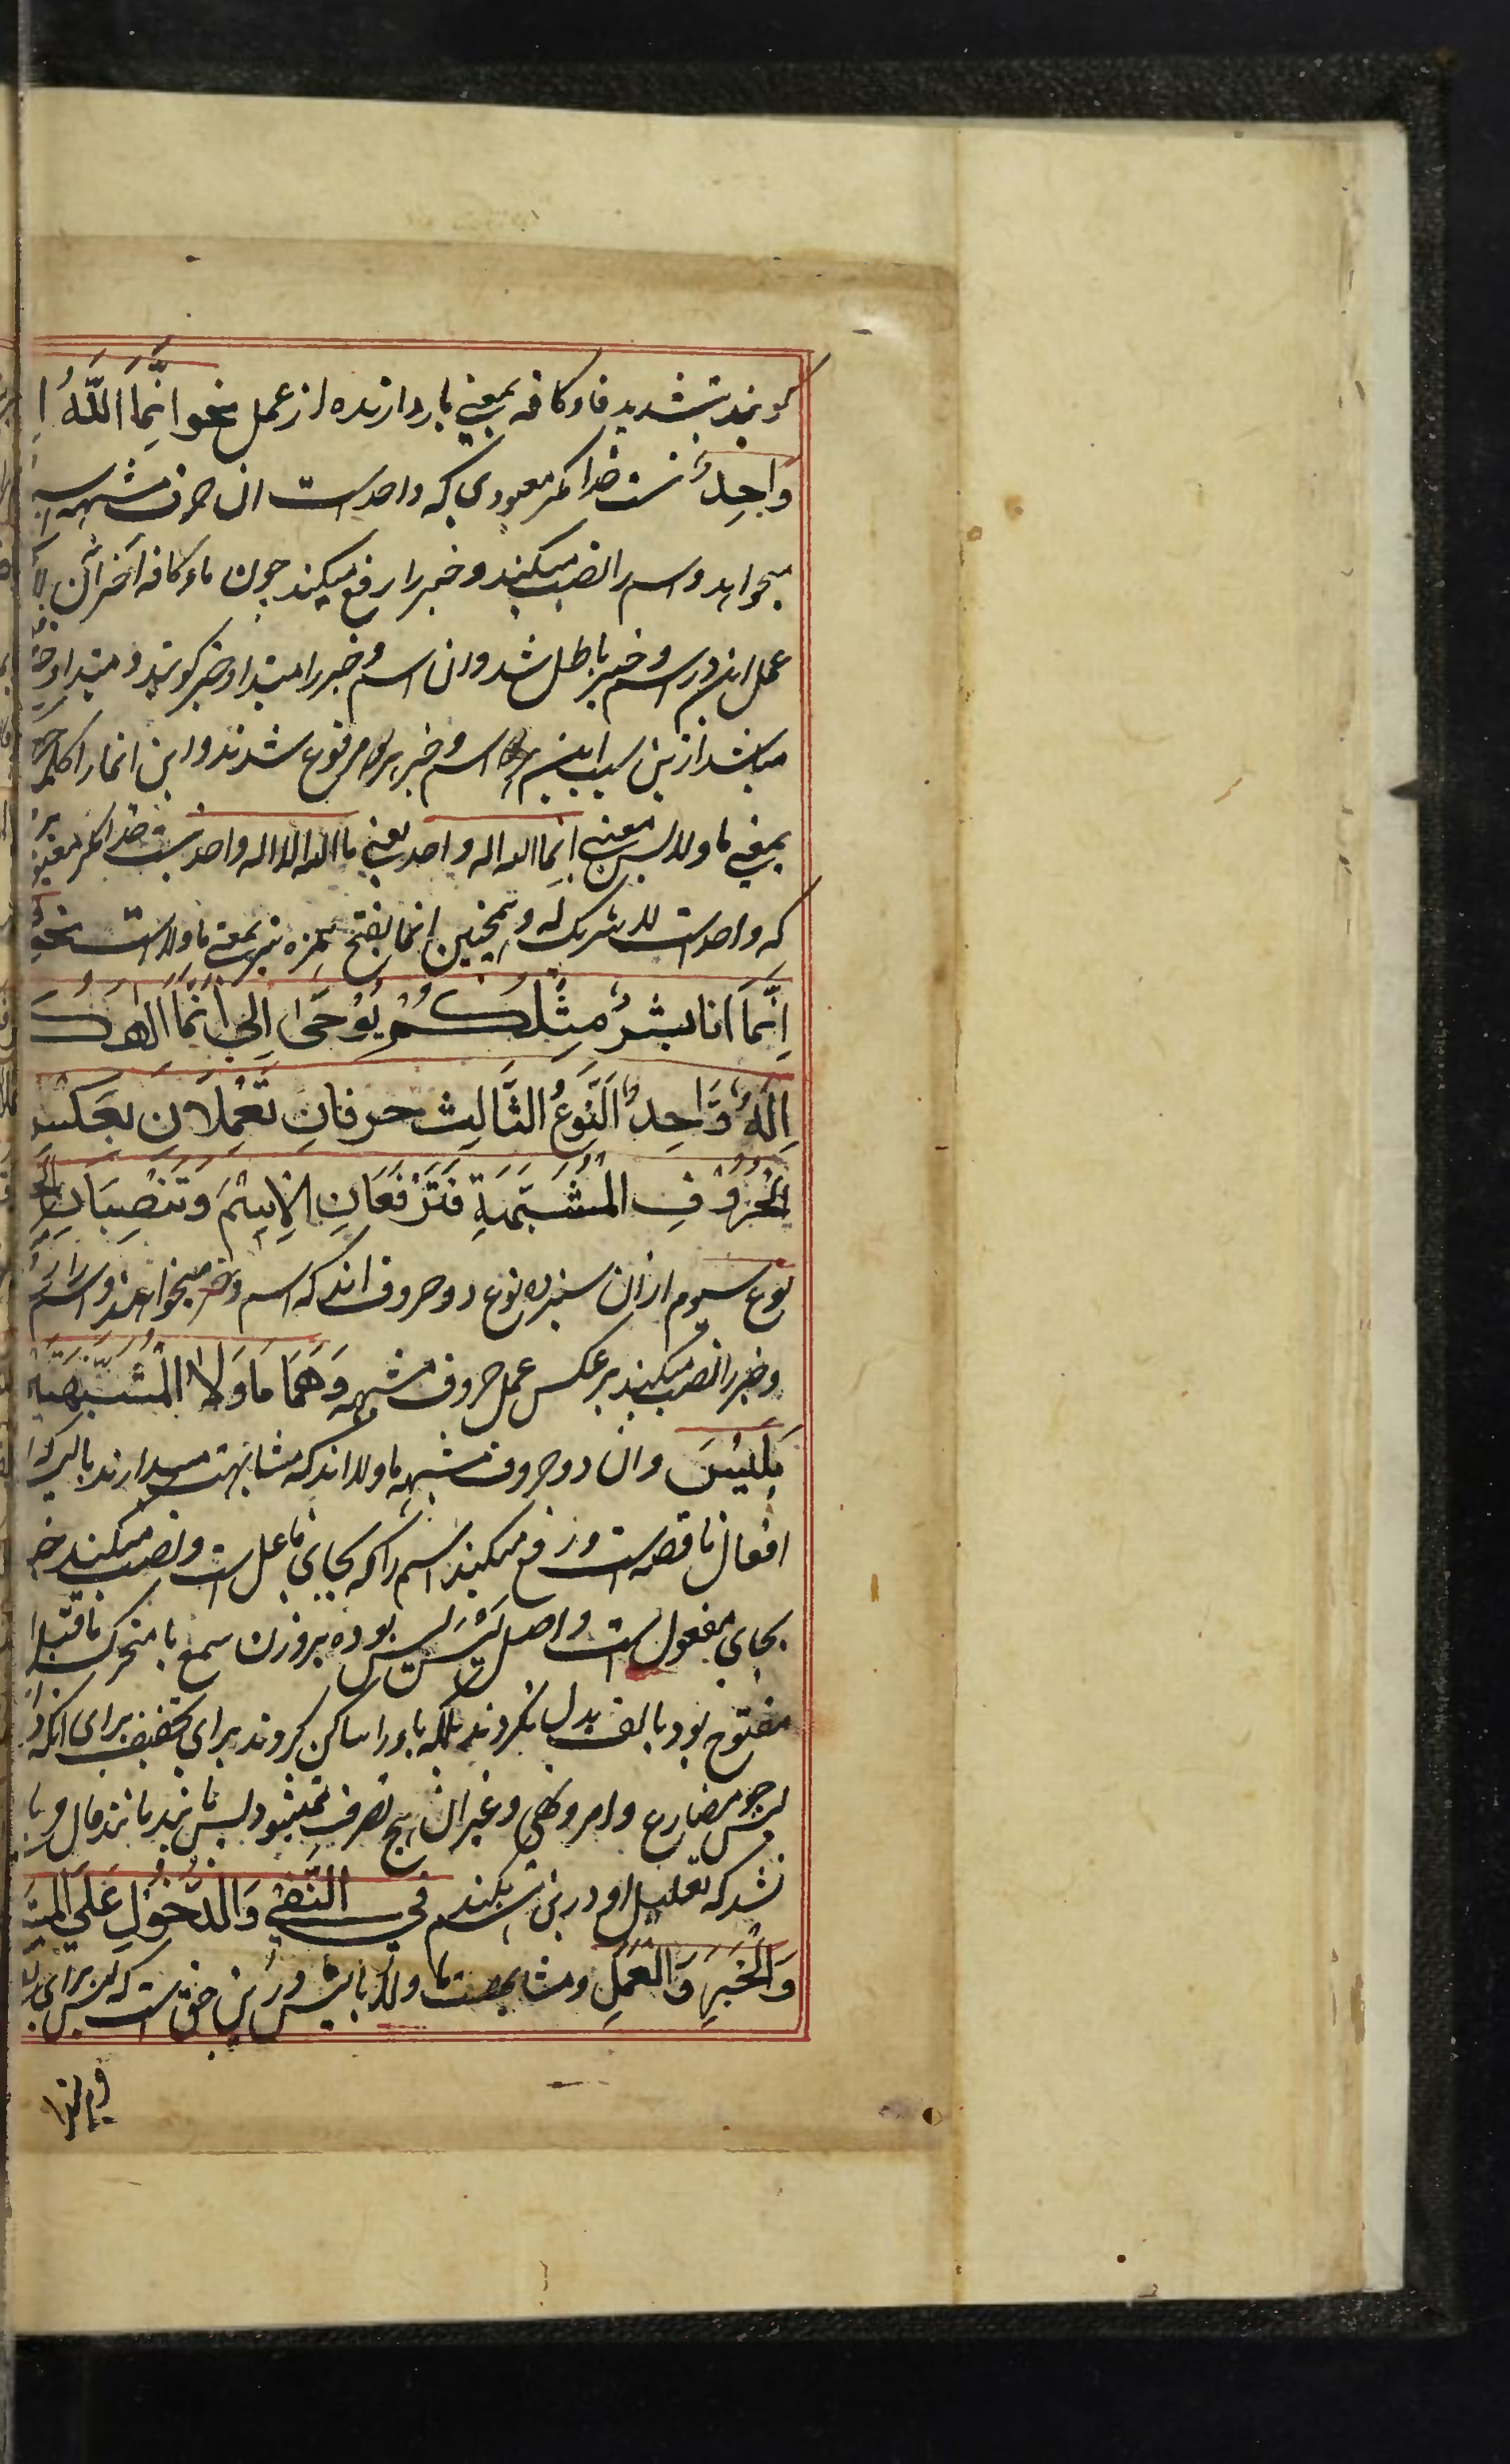 گویند بتشدید فا و کافه بمعنی بازدارنده از عمل نحو انَّمَا اللّٰهُ اِ
وَاحِدٌ نیست خدا مگر معبودی که واحد است ان حرف مشبهه است
میخواهد و اسم را نصب میکند و خبر را رفع میکند چون ماء کافه آخر ان
عمل ان در اسم و خبر باطل شد و ان اسم و خبر را مبتدا و خبر گویند و مبتدا و خبر
میباشد ازین سبب این اسم و خبر مرفوع شدند و این انما را
بمعنی ما و الا پس معنی انما الله اله واحد یعنی ما الله الا اله واحد نیست خدا مگر معبود
که واحد است لا شریک له و همچنین انما بفتح همزه نیز بمعنی ما و الا است نحو
اِنَّمَا انا بشرٌ مِثْلُكُمْ يُوْحَى اِلَيَّ اَنَّمَا الهُكُ
اِلَهٌ وَّاحِدٌ اَلنَّوْعُ الثَّالِث حرفانِ تَعْمِلَانِ بعَكْسِ
الْحُرُوْفِ الْمُشَبَّهَةِ فَتَرْفَعَانِ الْاِسْمَ وَتَنْصِبَانِ الْخَ
نوع سیوم ازان سیزده نوع دو حروف اند که اسم و خبر میخواهند و اسم را
و خبر را نصب میکنند بر عکس عمل حروف مشبهه وَهُمَا مَا وَلَا الْمُشَبَّهَتَيْ
بِلَيْسَ و ان دو حروف مشبهه ما و لا اند که مشابهت میدارند با لیس که از
افعال ناقصه است و رفع میکنند اسم را که بجای فاعل است و نصب میکنند خبر
بجای مفعول است و اصل لَیْسَ لیس بوده بر وزن سمع یا متحرک ماقبل
مفتوح بود بالف بدل نکردند بلکه یاء را ساکن کردند برای تخفیف برای انکه
لیس چو مضارع و امر و نهی و غیر ان هیچ تصرف نمیشود لیس مانند قال و با
نشد که تعلیل او درین اسم بکند في النَّفْيِ وَالدُّخُوْلِ عَلَى الْمُبْتَ
وَالْخَبَرِ وَالْعَمَلِ و مشابهت ما و لا بالیس درین حق است که لیس برای